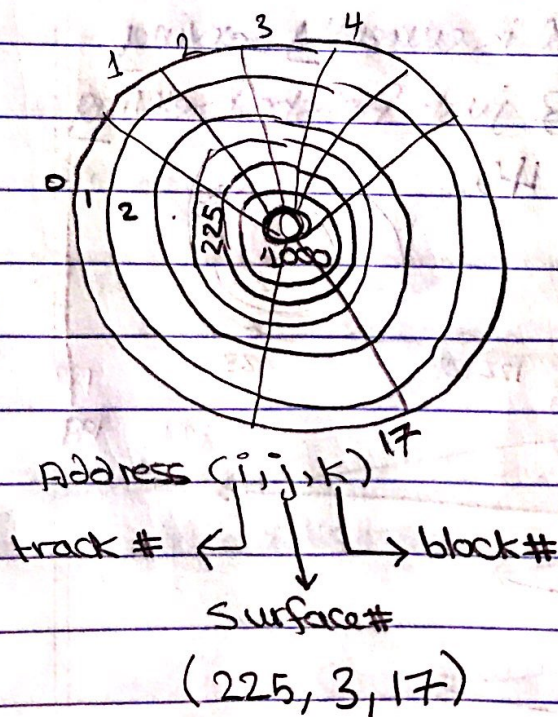 1 2 3 4
0 1 2 225
1000
17
Address (i,j,k)
track # block#
Surface#
(225, 3, 17)